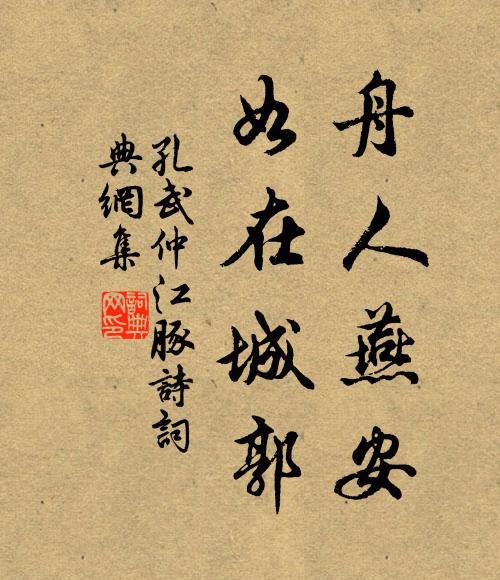 舟人燕安
如在城郭
孔武仲江豚詩詞
典網集
詞典
网印